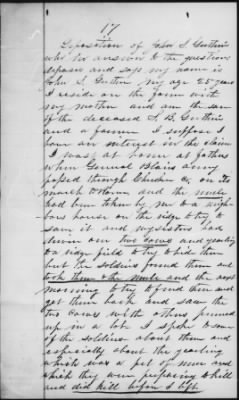 17
Deposition of John S. Guthrie
who in answer to the questions
deposes and says my name is
John S. Guthrie my age 25 years
I reside on the farm with
my mother and am the son
of the deceased S. B. Guthrie
and a farmer I suppose I
have an interest in the claim
I was at home at fathers
when General Blairs army
passed through Cherokee Co, on its
march to Rome and the mule
had been taken by me to a neigh-
bors house on the ridge to try to
save it and my sisters had
driven our two cows and yearling
to a ridge field to try to hide them
but the soldiers found them and
took them & the mule and the next
morning to try to find him and
get them back and saw the
two cows with others penned
up in a lot I spoke to some
of the soldiers about them and
especially about the yearling
which was a pet of mine and
which they were preparing to kill
and did kill before I left